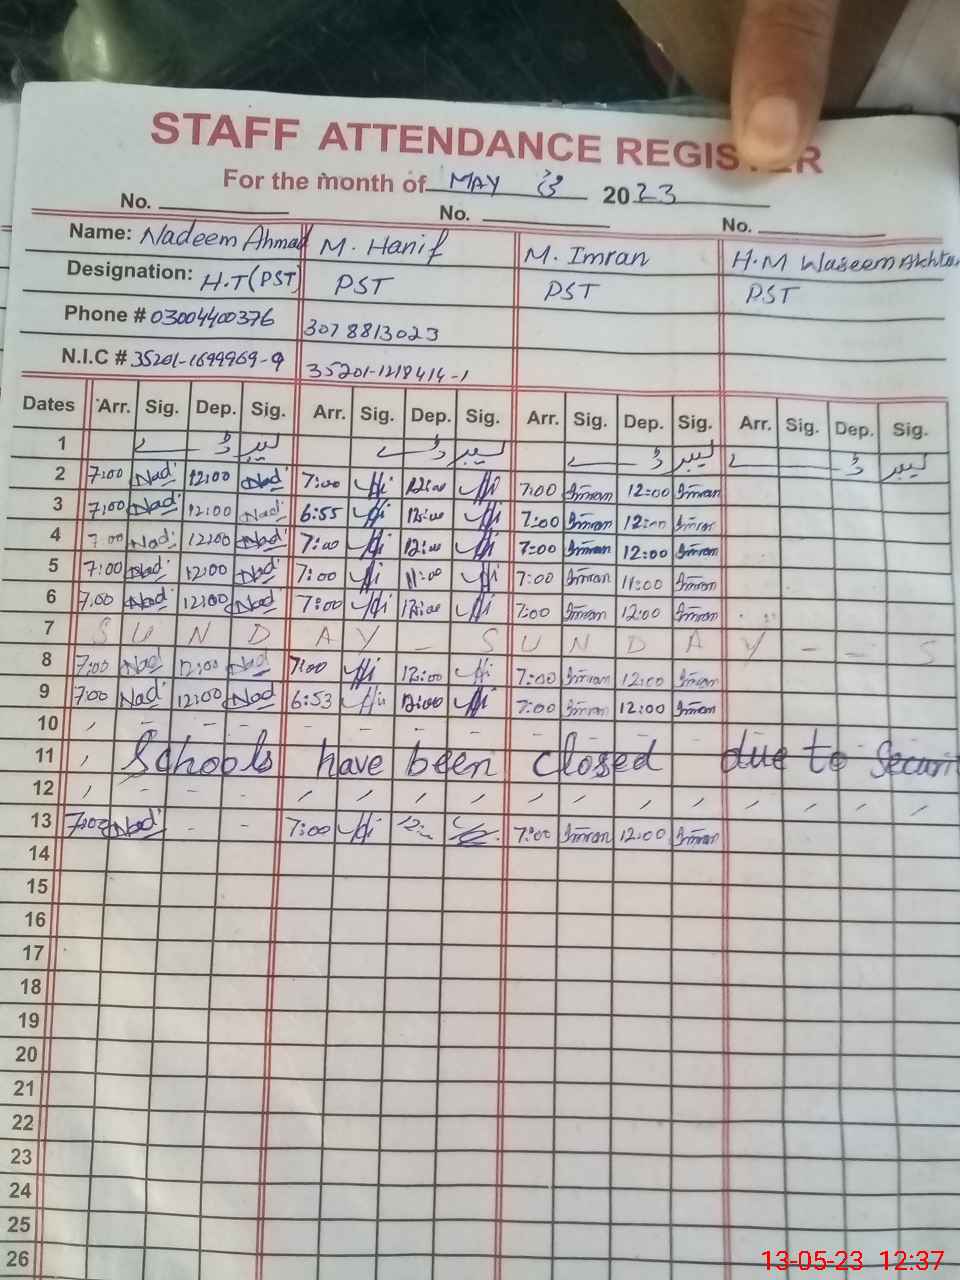 STAFF ATTENDANCE REGISTER
For the month of MAY 2023
No. No. No.
Name: Nadeem Ahmad M. Hanif M. Imran H.M Waseem Akhtar
Designation: H.T(PST) PST PST PST
Phone # 03004400376 3078813023
N.I.C # 35201-1699969-9 35201-1218414-1
Dates Arr. Sig. Dep. Sig. Arr. Sig. Dep. Sig. Arr. Sig. Dep. Sig. Arr. Sig. Dep. Sig.
1 لیبر ڈے لیبر ڈے لیبر ڈے لیبر ڈے
2 7:00 Nad 12:00 Nad 7:00 12:00 7:00 Imran 12:00 Imran
3 7:00 Nad 12:00 Nad 6:55 12:00 7:00 Imran 12:00 Imran
4 7:00 Nad 12:00 Nad 7:00 12:00 7:00 Imran 12:00 Imran
5 7:00 Nad 12:00 Nad 7:00 11:00 7:00 Imran 11:00 Imran
6 7:00 Nad 12:00 Nad 7:00 12:00 7:00 Imran 12:00 Imran
7 S U N D A Y - S U N D A Y - - S
8 7:00 Nad 12:00 Nad 7:00 12:00 7:00 Imran 12:00 Imran
9 7:00 Nad 12:00 Nad 6:53 12:00 7:00 Imran 12:00 Imran
10
11 Schools have been closed due to Securi
12
13 7:00 Nad - - 7:00 12:00 7:00 Imran 12:00 Imran
14
15
16
17
18
19
20
21
22
23
24
25
26
13-05-23 12:37